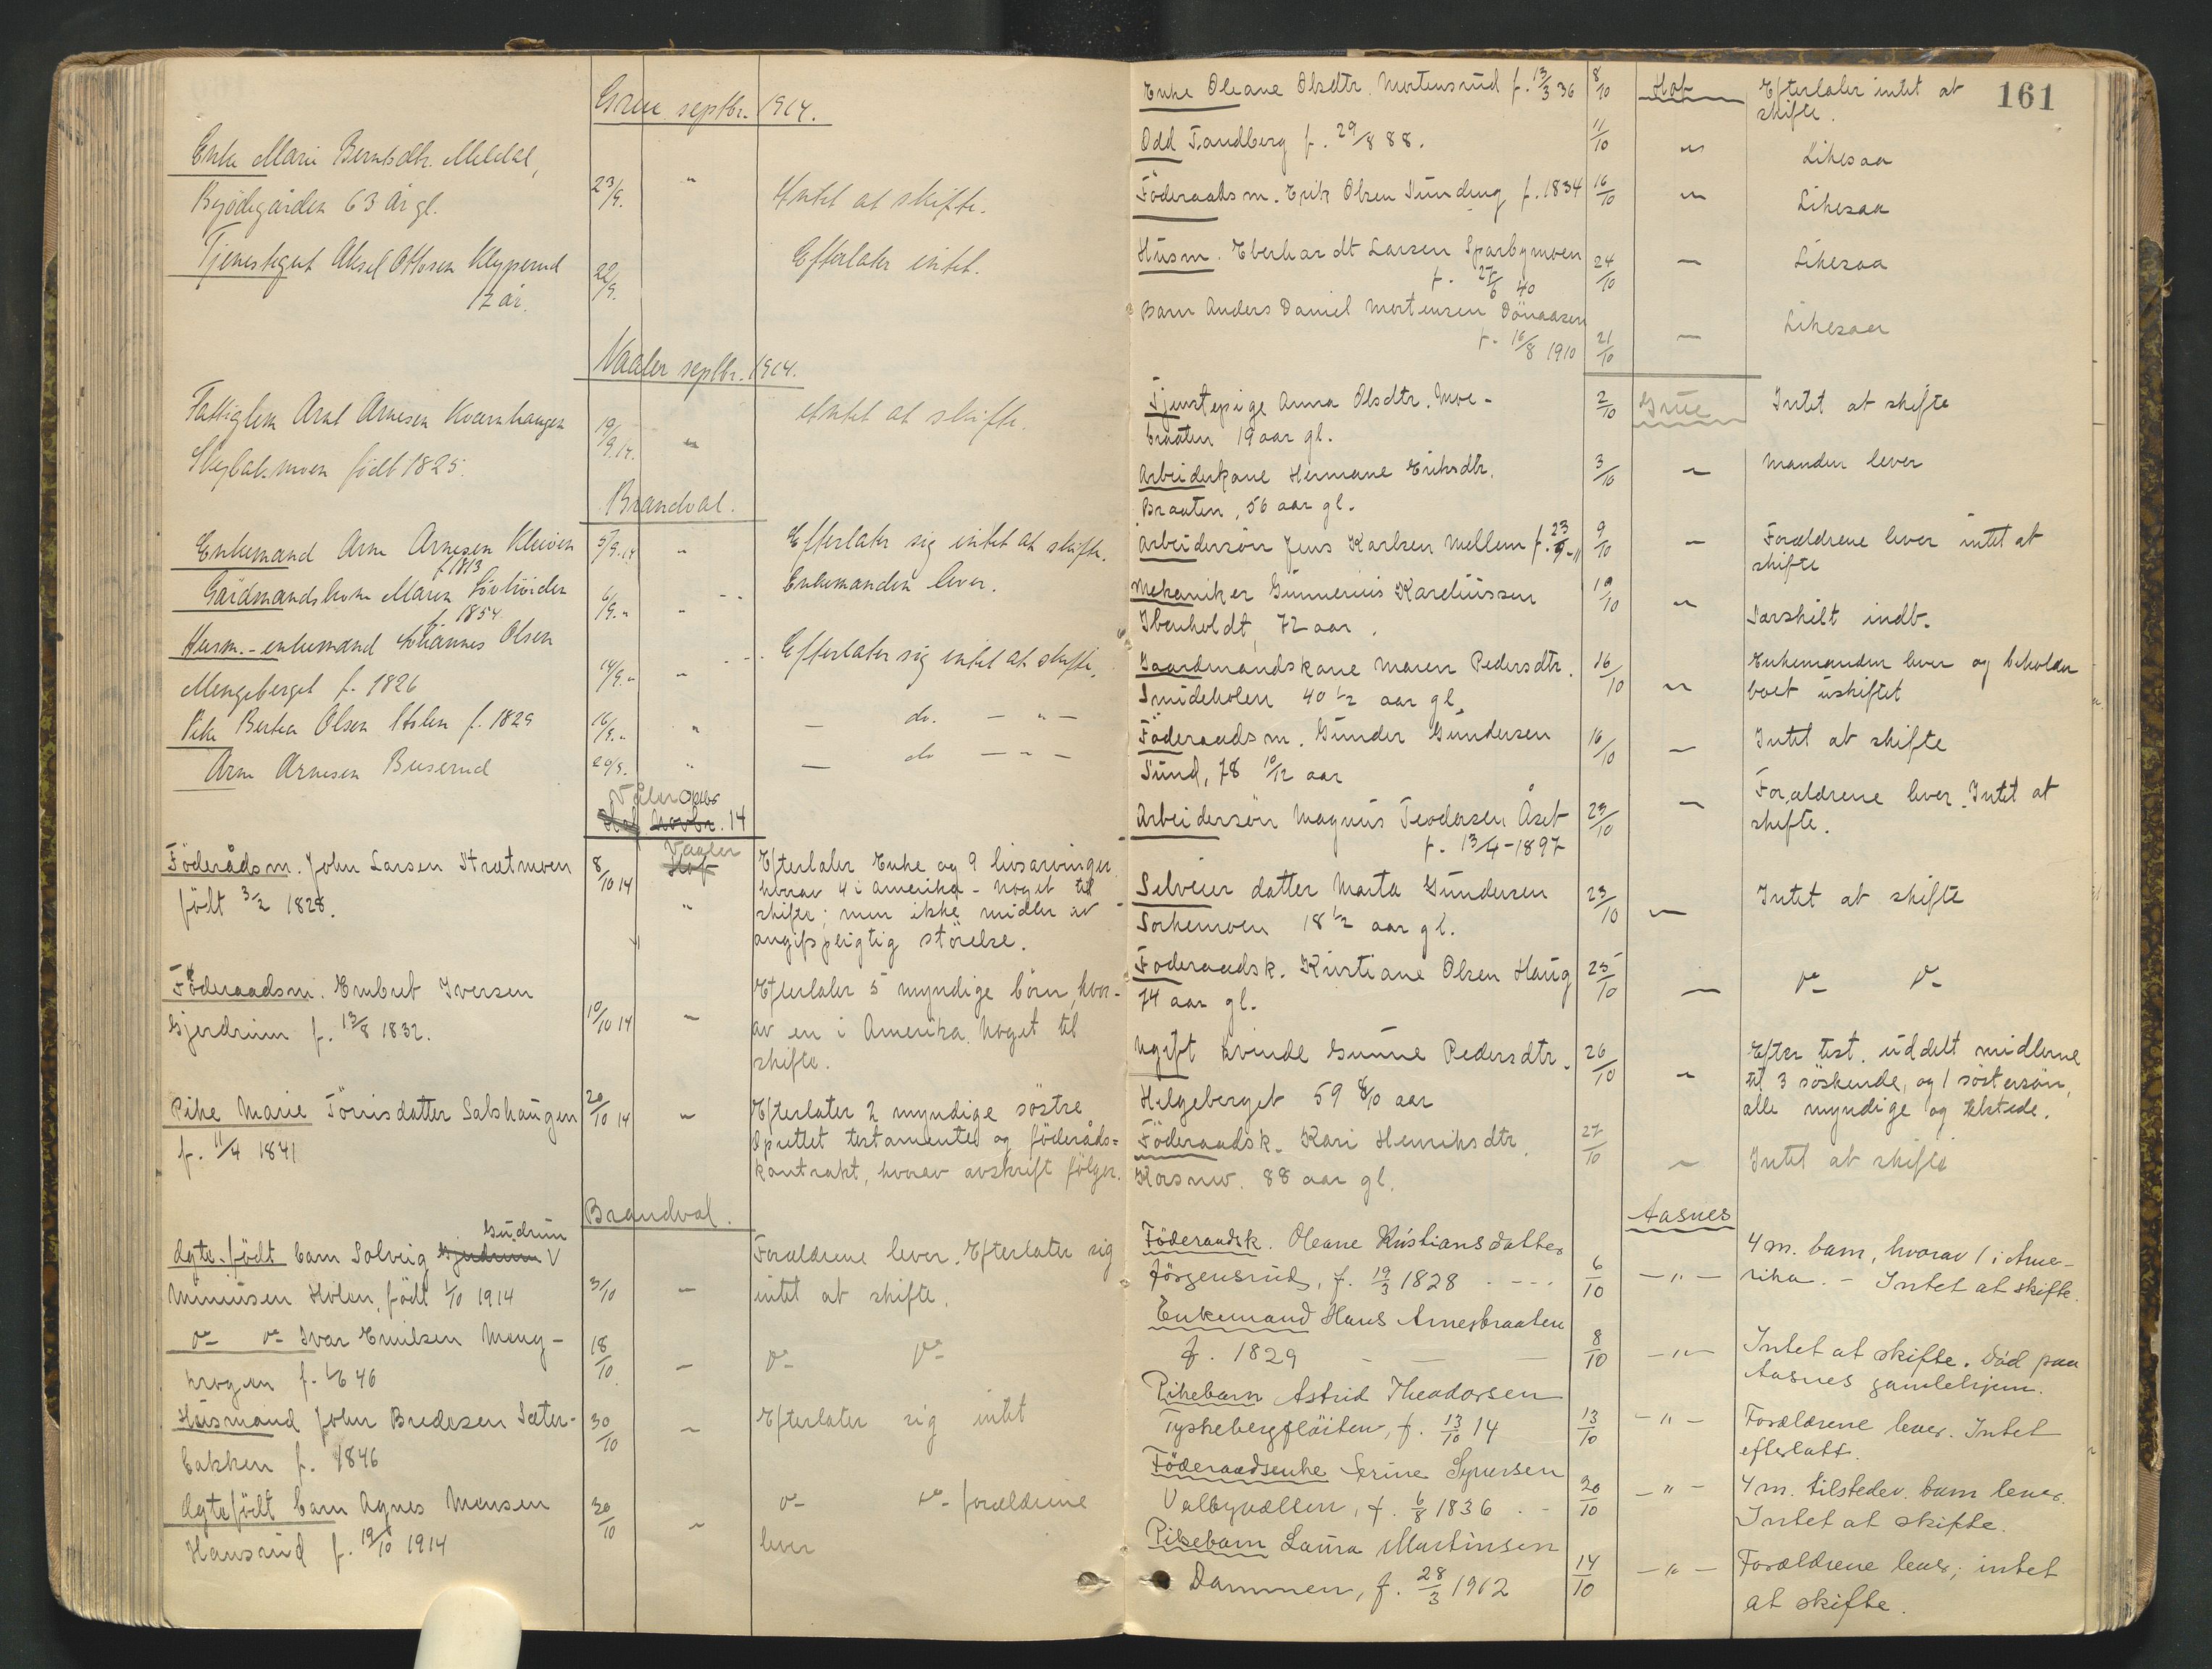 Grue septbr. 1914.
Enke Marie Berntsdtr. Meldal,
Bejödegården 63 år gl. 23/9. " Intet at skifte.
Tjenestegut Aksel Ottosen Klypperud
17 år. 22/9. Efterlater intet.
Vaaler septbr. 1914.
Fattiglem Arnt Arnesen Kvernhaugen
Skybakmoen födt 1825. 19/9.14. " Intet at skifte.
Brandval.
Enkemand Arne Arnesen Kleiven
f. 1813 5/9.14 " Efterlater sig intet at skifte.
Gårdmandskone Maren Lövhöiden
f. 1854 6/9." " -- Enkemanden lever.
Husm.-enkemand Johannes Olsen
Mengeberget f. 1826 14/9." " --. Efterlater sig intet at skifte.
Pike Bertea Olsen f. 1829 16/9." " — do. — " —
Arne Arnesen Buserud 29/9. " — do — " —
Våler Oktbr
Hof Novbr. 14
Föderådsm. John Larsen Strætmoen 8/10 14 Vaaler Hof Efterlater Enke og 9 livsarvinger
födt 3/2 1828. " hvorav 4 i Amerika - Noget til
skifte; men ikke midler av
angifspligtig störelse.
Föderaadsm. Embret Iversen
Gjerdrum f. 13/8 1832. 10/10 14 " Efterlater 5 myndige börn, hvor-
av en i Amerika. Noget til
skifte.
Pike Marie Törrisdatter Sabshaugen 20/10 14 " Efterlater 2 myndige söstre
f. 11/4 1841 Oprettet testamente og föderåds=
kontrakt, hvorav avskrift fölger.
Brandval.
Gudrun
Ægte-födt barn Solveig Gjudrun V
Holen, födt 1/10 1914 3/10 " Forældrene lever. Efterlater sig
intet at skifte.
do do Ivar Emilsen Meng-
krogen f. 18/10 " do do
Husmand John Bredesen Sæter-
bakken f. 1846 30/10 " Efterlater sig intet
Ægtefödt barn Agnes Monsen
Hansrud f. 19/10 1914 30/10 " do do forældrene
lever
161
Enke Oleane Olsdtr. Mortensrud f. 13/3 36 8/10 Hof Efterlater intet at
skifte.
Odd Tandberg f. 29/8 88. 11/10 " Likesaa
Föderaadsm. Erik Olsen Sundeng f. 1834 16/10 " Likesaa
Husm. Eberhardt Larsen Sparbymoen
f. 27/6 40 24/10 " Likesaa
Barn Anders Daniel Mortensen Dönaasen
f. 16/8 1910 21/10 " Likesaa
Tjenestepige Anna Olsdtr. Moe-
braaten 19 aar gl. 2/10 Grue Intet at skifte
Arbeiderkone Hermane Eriksdtr.
Braaten, 56 aar gl. 3/10 " Manden lever
Arbeidersön Jens Karlsen Mellem f. 23/9-11 9/10 " Forældrene lever intet at
skifte
Mekaniker Gunnerius Kareliussen
Ibenholdt, 72 aar. 19/10 " Særskilt indb.
Gaardmandskone Maren Pedersdtr.
Smideholen 40 1/2 aar gl. 16/10 " Enkemanden lever og beholder
boet uskiftet
Föderaadsm. Gunder Gundersen
Sund, 78 10/12 aar 16/10 " Intet at skifte
Arbeidersön Magnus Teodorsen Åset
f. 13/4-1897 23/10 " Forældrene lever. Intet at
skifte.
Selveier datter Marta Gundersen
Sorkemoen 18 1/2 aar gl. 23/10 " Intet at skifte
Föderaadsk. Kristiane Olsen Haug
74 aar gl. 25/10 " do do
Ugift kvinde Gunne Pedersdtr.
Helgeberget 59 8/10 aar 26/10 " Efter test. uddelt midlerne
til 3 söskende, og 1 söstersön,
alle myndige og tilstede.
Föderaadsk. Kari Henriksdtr.
88 aar gl. 27/10 " Intet at skifte
Aasnes
Föderaadsk. Oleane Kristiansdatter
Jörgensrud, f. 19/3 1828 6/10 — " — 4 m. barn, hvorav 1 i Ame-
rika. — Intet at skifte.
Enkemand Hans Arnesbraaten
f. 1829 — — — 8/10 — " — Intet at skifte. Död paa
Aasnes gamlehjem.
Pikebarn Astrid Theodorsen
Tyskebergflöiten, f. 13/10 14 13/10 — " — Forældrene lever. Intet
efterlatt.
Föderaadsenke Serine Syversen
Valbyvollen, f. 6/8 1836 20/10 — " — 4 m. tilstedev. barn lever.
Intet at skifte.
Pikebarn Laura Martinsen
Dammen, f. 28/3 1912 14/10 — " — Forældrene lever; intet
at skifte.